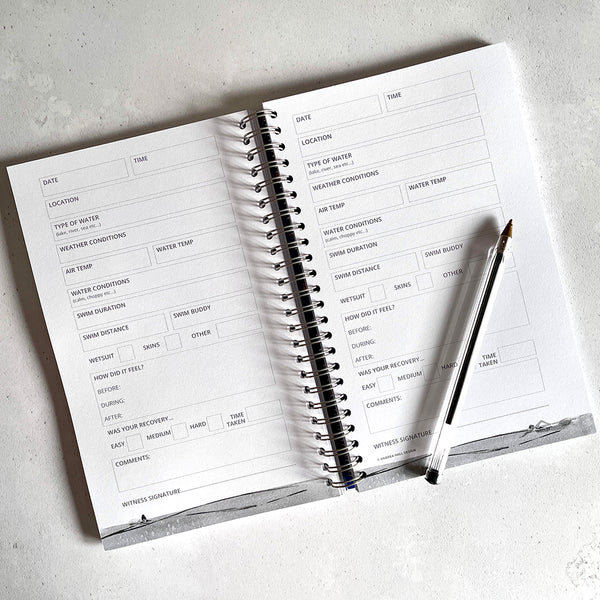 DATE TIME
LOCATION
TYPE OF WATER
(lake, river, sea etc...)
WEATHER CONDITIONS
AIR TEMP WATER TEMP
WATER CONDITIONS
(calm, choppy etc...)
SWIM DURATION
SWIM DISTANCE SWIM BUDDY
WETSUIT SKINS OTHER
HOW DID IT FEEL?
BEFORE:
DURING:
AFTER:
WAS YOUR RECOVERY...
EASY MEDIUM HARD TIME TAKEN
COMMENTS:
WITNESS SIGNATURE
DATE TIME
LOCATION
TYPE OF WATER
(lake, river, sea etc...)
WEATHER CONDITIONS
AIR TEMP WATER TEMP
WATER CONDITIONS
(calm, choppy etc...)
SWIM DURATION
SWIM DISTANCE SWIM BUDDY
WETSUIT SKINS OTHER
HOW DID IT FEEL?
BEFORE:
DURING:
AFTER:
WAS YOUR RECOVERY...
EASY MEDIUM HARD TIME TAKEN
COMMENTS:
WITNESS SIGNATURE